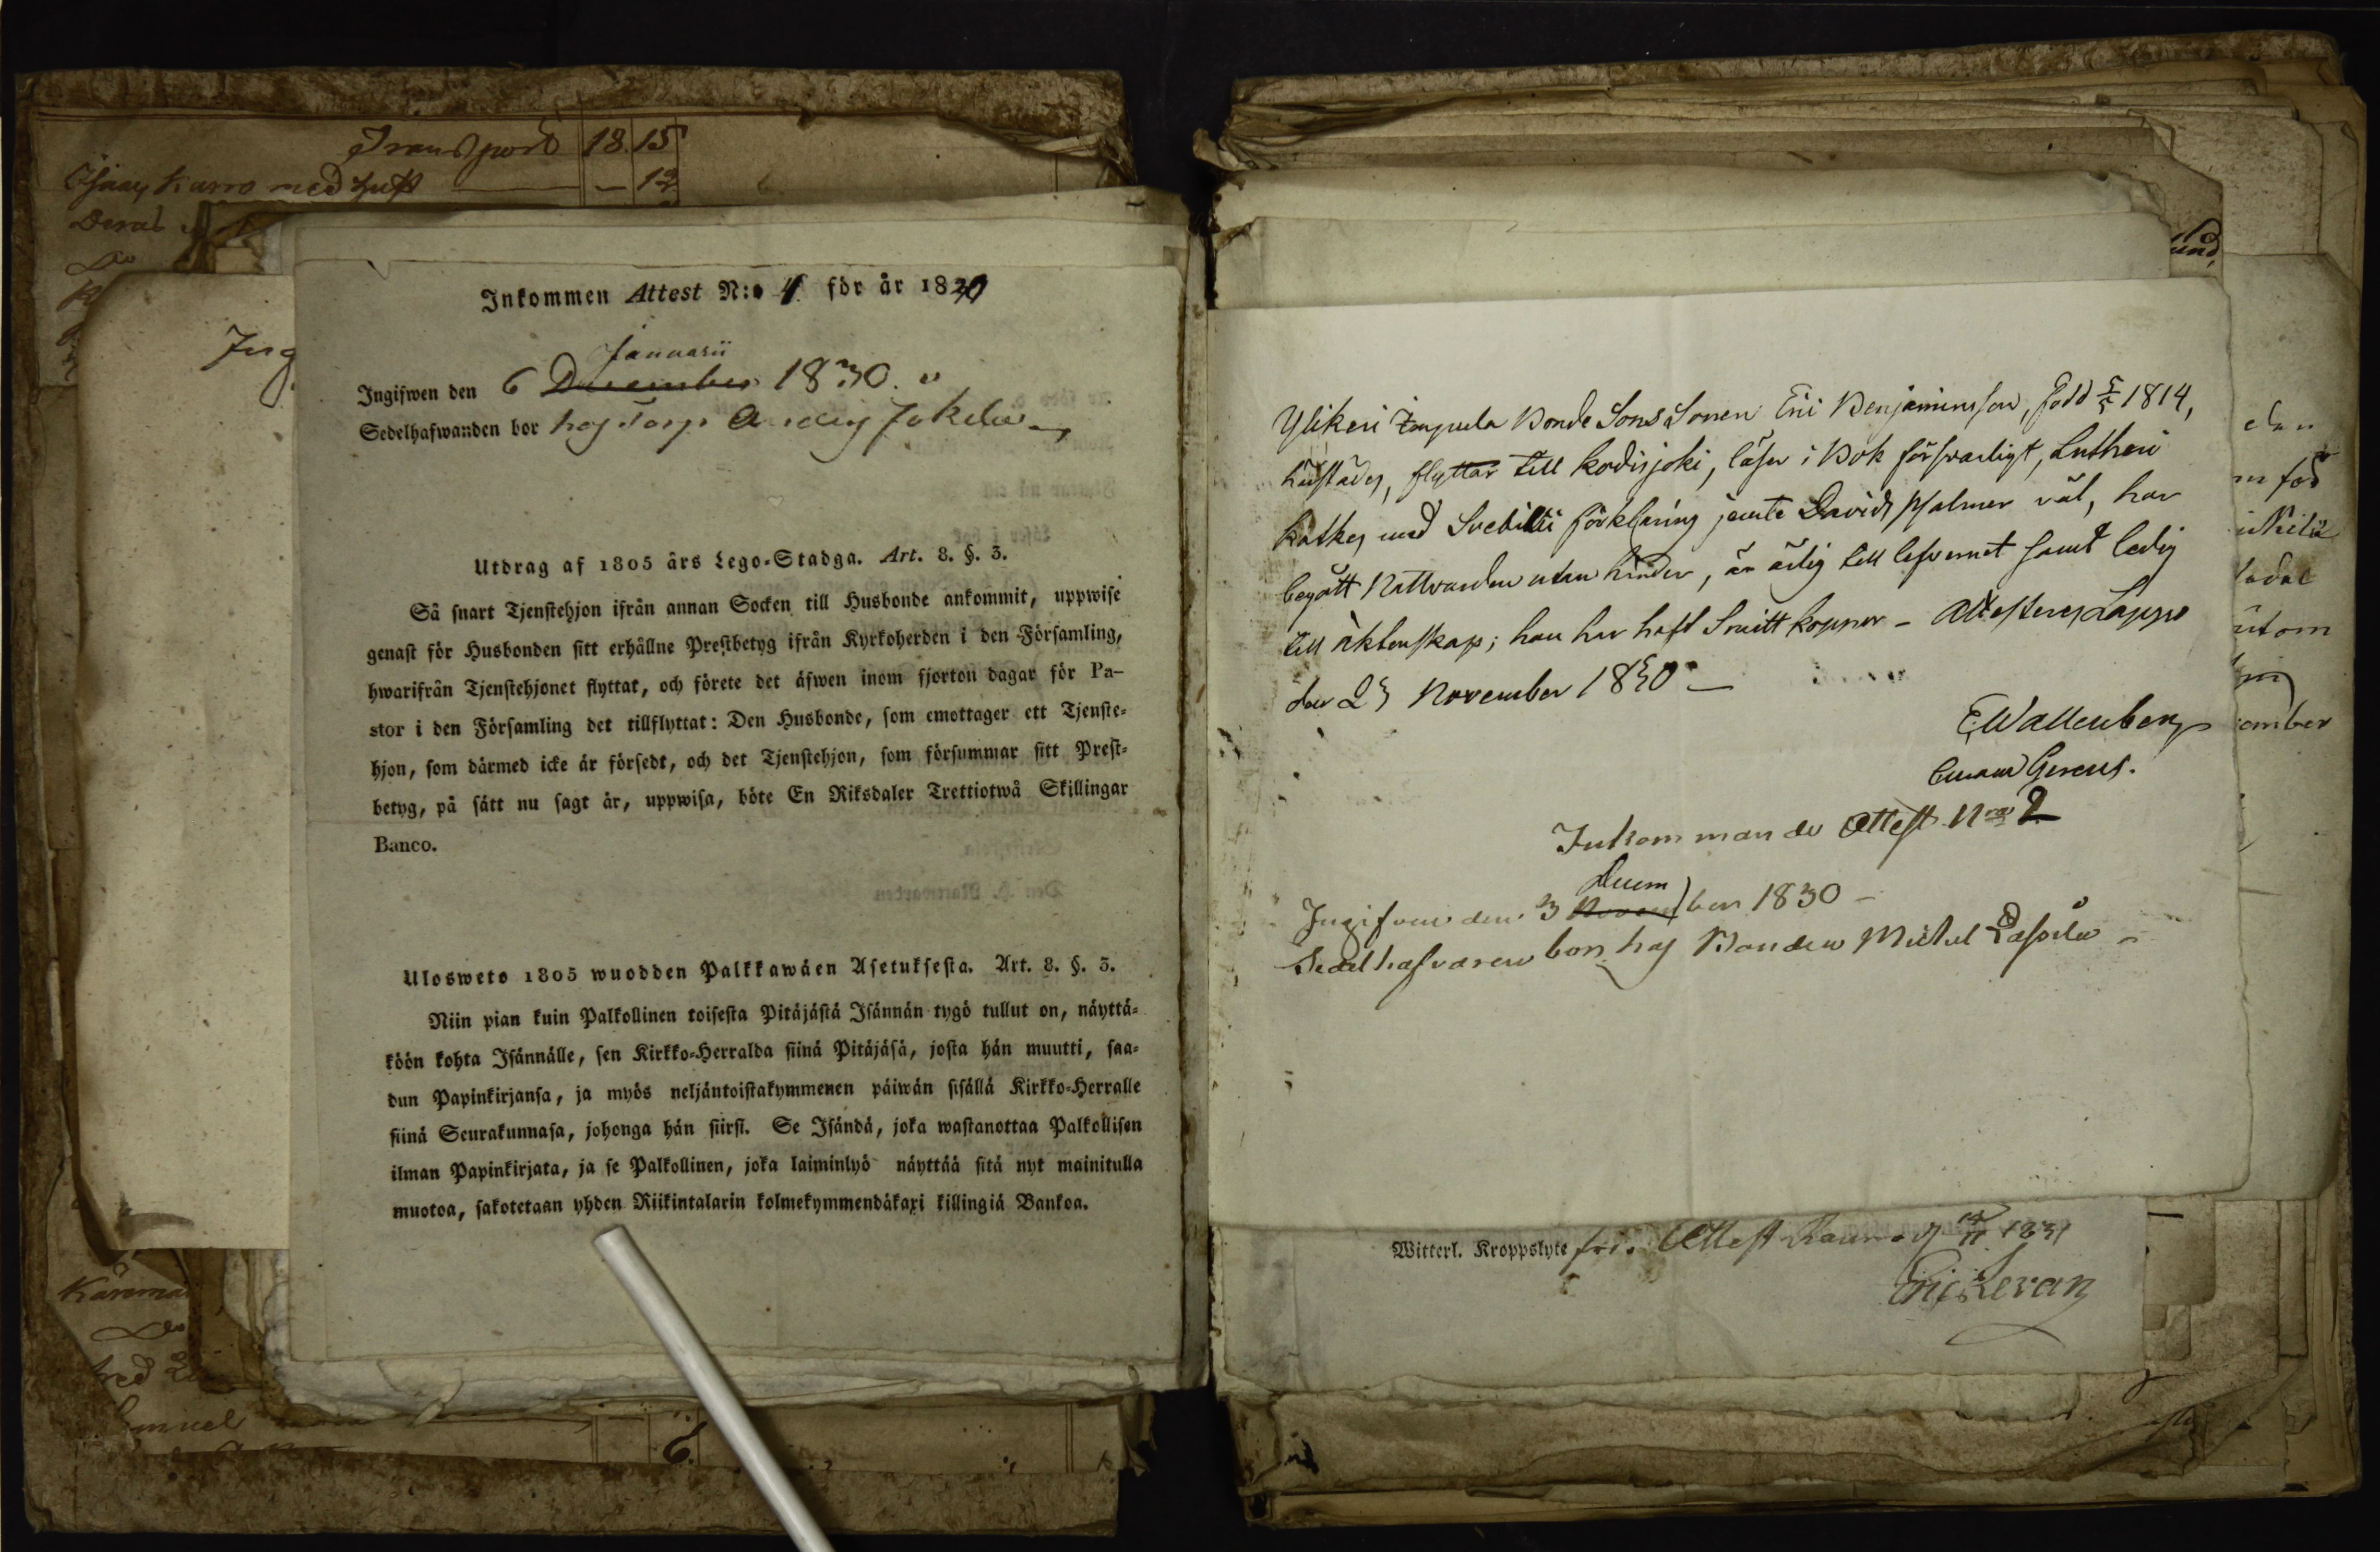 Transport 18. 15
Karro med
Inkommen Attest N:o 4 för år 1830
Januarii
Ingifwen den 6 December 1830.
Sedelhafwanden bor hos Torp. Jokela
Utdrag af 1805 års Lego-Stadga. Art. 8. §. 3.
Så snart Tjenstehjon ifrån annan Socken till Husbonde ankommit, uppwise
genast för Husbonden sitt erhållne Prestbetyg ifrån Kyrkoherden i den Församling,
hwarifrån Tjenstehjonet flyttat, och förete det äfwen inom fjorton dagar för Pa-
stor i den Församling det tillflyttat: Den Husbonde, som emottager ett Tjenste-
hjon, som därmed icke är försedt, och det Tjenstehjon, som försummar sitt Prest-
betyg, på sätt nu sagt är, uppwisa, böte En Riksdaler Trettiotwå Skillingar
Banco.
Ulosweto 1805 wuodden Palkkawäen Asetuksesta. Art. 8. §. 3.
Niin pian kuin Palkollinen toisesta Pitäjästä Isännän tygö tullut on, näyttä-
köön kohta Isännälle, sen Kirkko-Herralda siinä Pitäjäsä, josta hän muutti, saa-
dun Papinkirjansa, ja myös neljäntoistakymmenen päiwän sisällä Kirkko-Herralle
siinä Seurakunnasa, johonga hän siirsi. Se Isändä, joka wastanottaa Palkollisen
ilman Papinkirjata, ja se Palkollinen, joka laiminlyö näyttää sitä nyt mainitulla
muotoa, sakotetaan yhden Riikintalarin kolmekymmendäkaxi killingiä Bankoa.
Ylikeri Bonde Sons Sonen Eric Benjaminsson, född 5/5 1814,
härstädes, flyttar till Kodisjoki, läser i Bok försvarligt, Lutheri
Katkes med Svebilii förklaring jemte Davids Psalmer väl, har
begått Nattvarden utan hinder, är ärlig till lefvernet samt ledig
till äktenskap; han har haft Smittkoppor - Attesteras Lappo
den 23 November 1830
E. Wallenberg
Inkommande Attest N:o 2
Decem
Ingifven den 3 Novem ber 1830 -
Sedelhafvaren bor hos Bonden Michel
Witterl. Kroppslyte fri. Attest Raumo 1831
Eric Levan